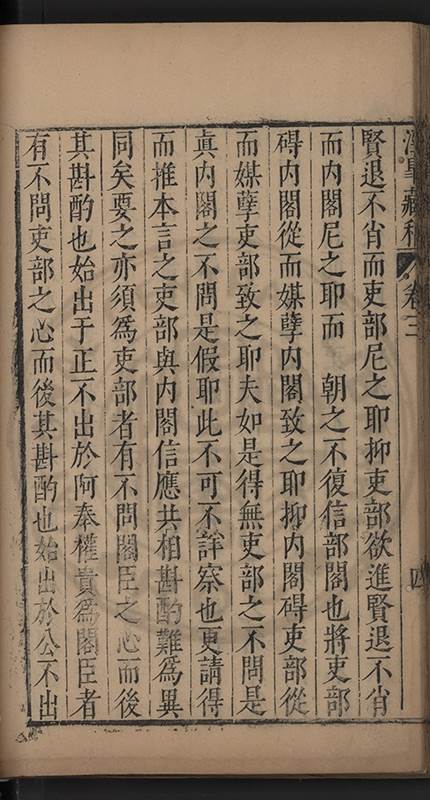 藏稿 卷三
四
賢退不肖而吏部尼之耶抑吏部欲進賢退不肖
而內閣尼之耶而 朝之不復信部閣也將吏部
碍內閣從而媒孽內閣致之耶抑內閣碍吏部從
而媒孽吏部致之耶夫如是得無吏部之不問是
真內閣之不問是假耶此不可不詳察也更請得
而推本言之吏部與內閣信應共相斟酌難爲異
同矣要之亦須爲吏部者有不問閣臣之心而後
其斟酌也始出于正不出於阿奉權貴爲閣臣者
有不問吏部之心而後其斟酌也始出於公不出